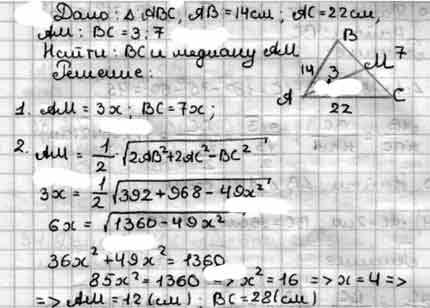 Дано: Δ ABC, AB = 14 см; AC = 22 см,
AM : BC = 3 : 7
Найти: BC и медиану AM
Решение:
B
14
3
M
7
A
22
C
1. AM = 3x; BC = 7x;
2. AM = 1/2 · √(2AB² + 2AC² - BC²)
3x = 1/2 √(392 + 968 - 49x²)
6x = √(1360 - 49x²)
36x² + 49x² = 1360
85x² = 1360 => x² = 16 => x = 4 =>
=> AM = 12 (см); BC = 28 (см)